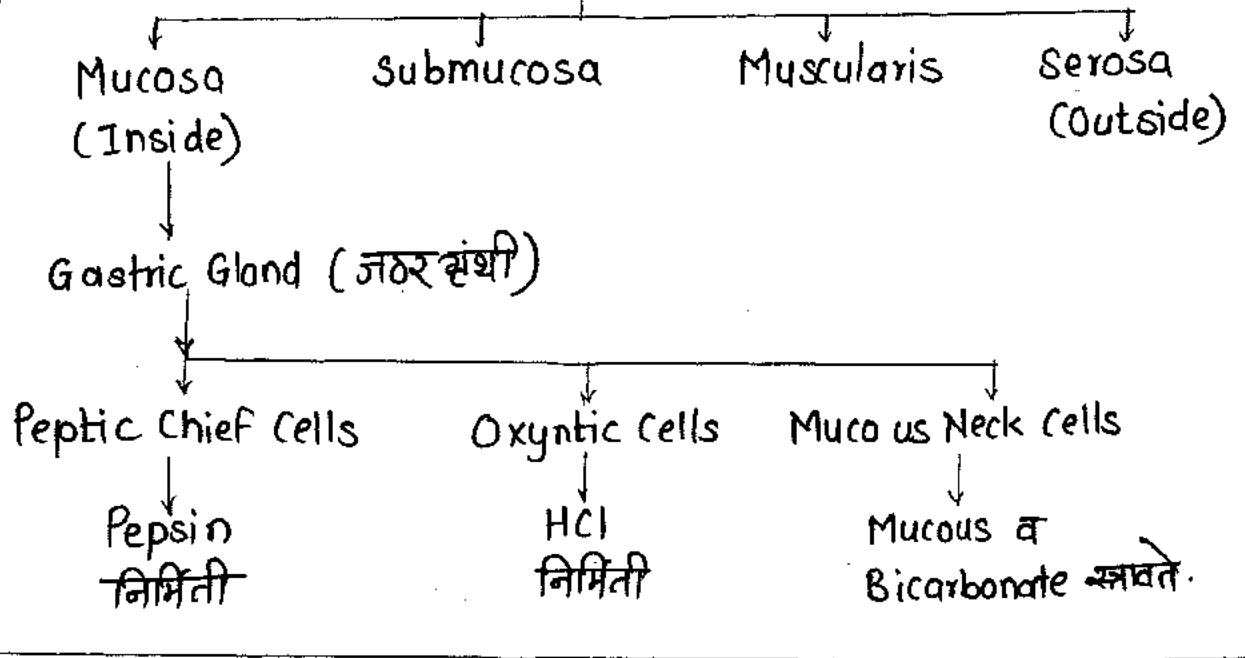 Mucosa Submucosa Muscularis Serosa
(Inside) (Outside)
Gastric Gland (जठर ग्रंथी)
Peptic Chief Cells Oxyntic Cells Mucous Neck Cells
Pepsin HCl Mucous व
निर्मिती निर्मिती Bicarbonate स्त्रावते.